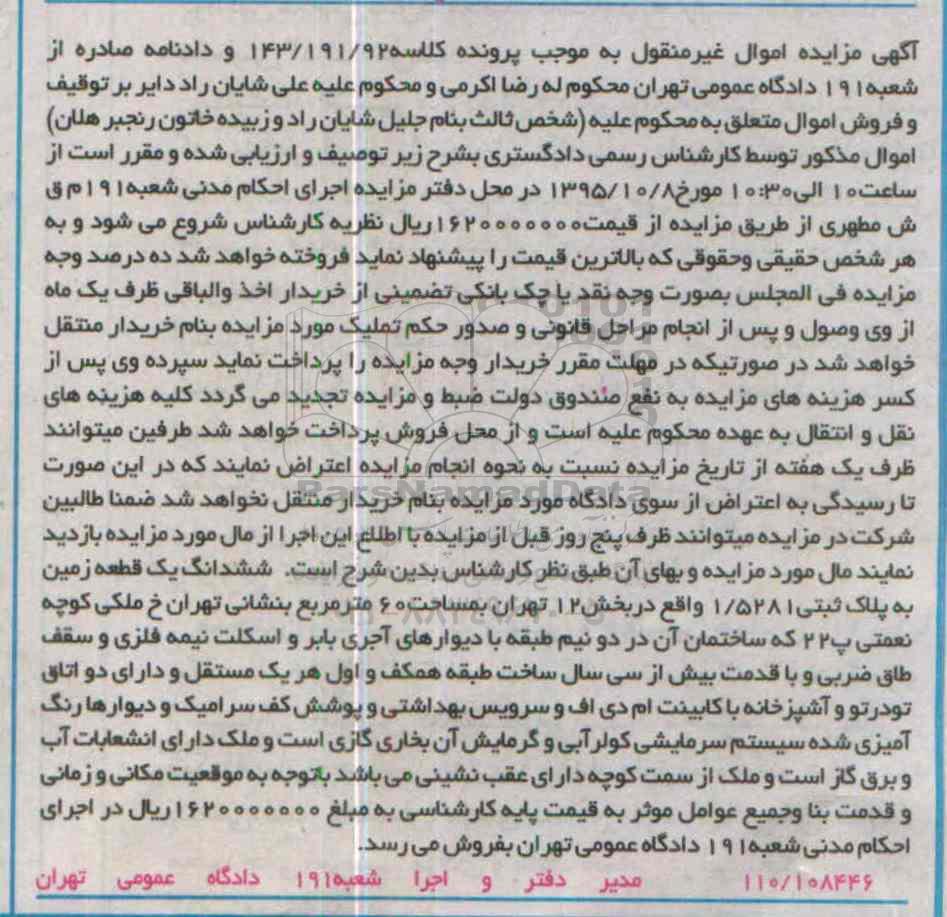 آگهی مزایده اموال غیرمنقول به موجب پرونده کلاسه۱۴۳/۱۹۱/۹۲ و دادنامه صادره از
شعبه۱۹۱ دادگاه عمومی تهران محکوم له رضا اکرمی و محکوم علیه علی شایان راد دایر بر توقیف
و فروش اموال متعلق به محکوم علیه (شخص ثالث بنام جلیل شایان راد و زبیده خاتون رنجبر هلان)
اموال مذکور توسط کارشناس رسمی دادگستری بشرح زیر توصیف و ارزیابی شده و مقرر است از
ساعت۱۰ الی۱۰:۳۰ مورخ۱۳۹۵/۱۰/۸ در محل دفتر مزایده اجرای احکام مدنی شعبه۱۹۱م ق
ش مطهری از طریق مزایده از قیمت۱۶۲۰۰۰۰۰۰۰ریال نظریه کارشناس شروع می شود و به
هر شخص حقیقی وحقوقی که بالاترین قیمت را پیشنهاد نماید فروخته خواهد شد ده درصد وجه
مزایده فی المجلس بصورت وجه نقد یا چک بانکی تضمینی از خریدار اخذ والباقی ظرف یک ماه
از وی وصول و پس از انجام مراحل قانونی و صدور حکم تملیک مورد مزایده بنام خریدار منتقل
خواهد شد در صورتیکه در مهلت مقرر خریدار وجه مزایده را پرداخت نماید سپرده وی پس از
کسر هزینه های مزایده به نفع صندوق دولت ضبط و مزایده تجدید می گردد کلیه هزینه های
نقل و انتقال به عهده محکوم علیه است و از محل فروش پرداخت خواهد شد طرفین میتوانند
ظرف یک هفته از تاریخ مزایده نسبت به نحوه انجام مزایده اعتراض نمایند که در این صورت
ParsNamadData
تا رسیدگی به اعتراض از سوی دادگاه مورد مزایده بنام خریدار منتقل نخواهد شد ضمنا طالبین
شرکت در مزایده میتوانند ظرف پنج روز قبل از مزایده با اطلاع این اجرا از مال مورد مزایده بازدید
نمایند مال مورد مزایده و بهای آن طبق نظر کارشناس بدین شرح است. ششدانگ یک قطعه زمین
به پلاک ثبتی۱/۵۲۸۱ واقع دربخش۱۲ تهران بمساحت۶۰ مترمربع بنشانی تهران خ ملکی کوچه
نعمتی پ۲۲ که ساختمان آن در دو نیم طبقه با دیوارهای آجری بابر و اسکلت نیمه فلزی و سقف
طاق ضربی و با قدمت بیش از سی سال ساخت طبقه همکف و اول هر یک مستقل و دارای دو اتاق
تودرتو و آشپزخانه با کابینت ام دی اف و سرویس بهداشتی و پوشش کف سرامیک و دیوارها رنگ
آمیزی شده سیستم سرمایشی کولرآبی و گرمایش آن بخاری گازی است و ملک دارای انشعابات آب
و برق گاز است و ملک از سمت کوچه دارای عقب نشینی می باشد باتوجه به موقعیت مکانی و زمانی
و قدمت بنا وجمیع عوامل موثر به قیمت پایه کارشناسی به مبلغ ۱۶۲۰۰۰۰۰۰۰ریال در اجرای
احکام مدنی شعبه۱۹۱ دادگاه عمومی تهران بفروش می رسد.
۱۱۰/۱۰۸۴۴۶ مدیر دفتر و اجرا شعبه۱۹۱ دادگاه عمومی تهران